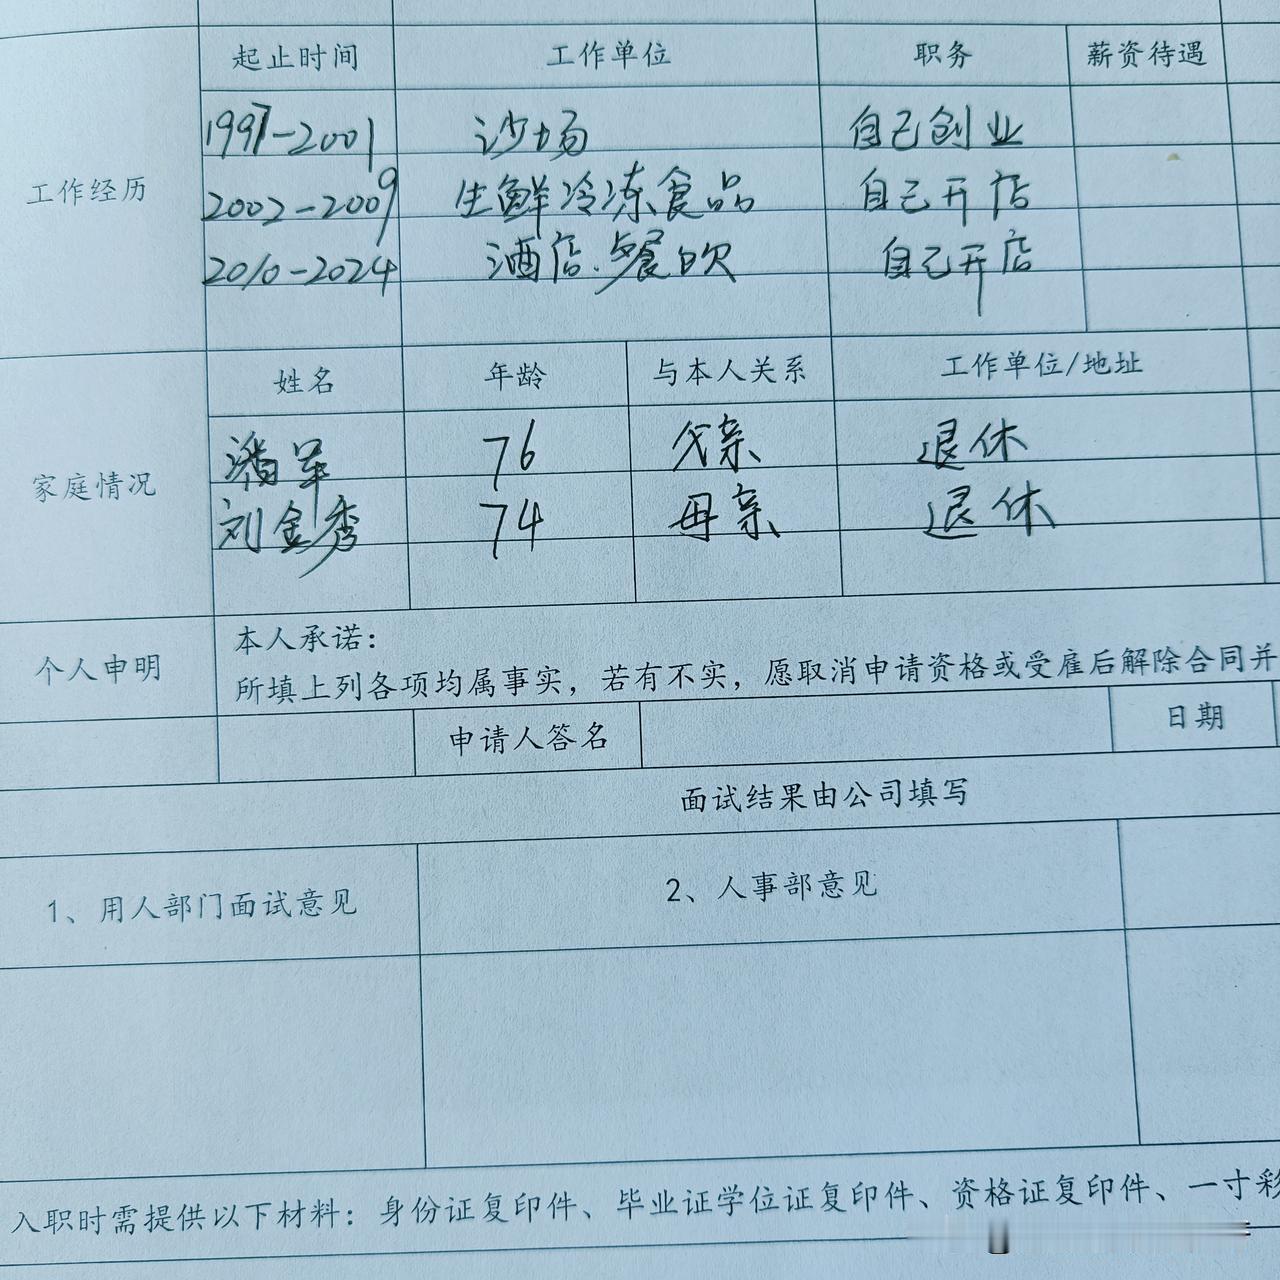 起止时间 工作单位 职务 薪资待遇
工作经历
1997-2001 沙场 自己创业
2002-2009 生鲜冷冻食品 自己开店
2010-2024 酒店.餐饮 自己开店
姓名 年龄 与本人关系 工作单位/地址
家庭情况
潘军 76 父亲 退休
刘金秀 74 母亲 退休
个人申明
本人承诺：
所填上列各项均属事实，若有不实，愿取消申请资格或受雇后解除合同并
申请人签名 日期
面试结果由公司填写
1、用人部门面试意见 2、人事部意见
入职时需提供以下材料：身份证复印件、毕业证学位证复印件、资格证复印件、一寸彩